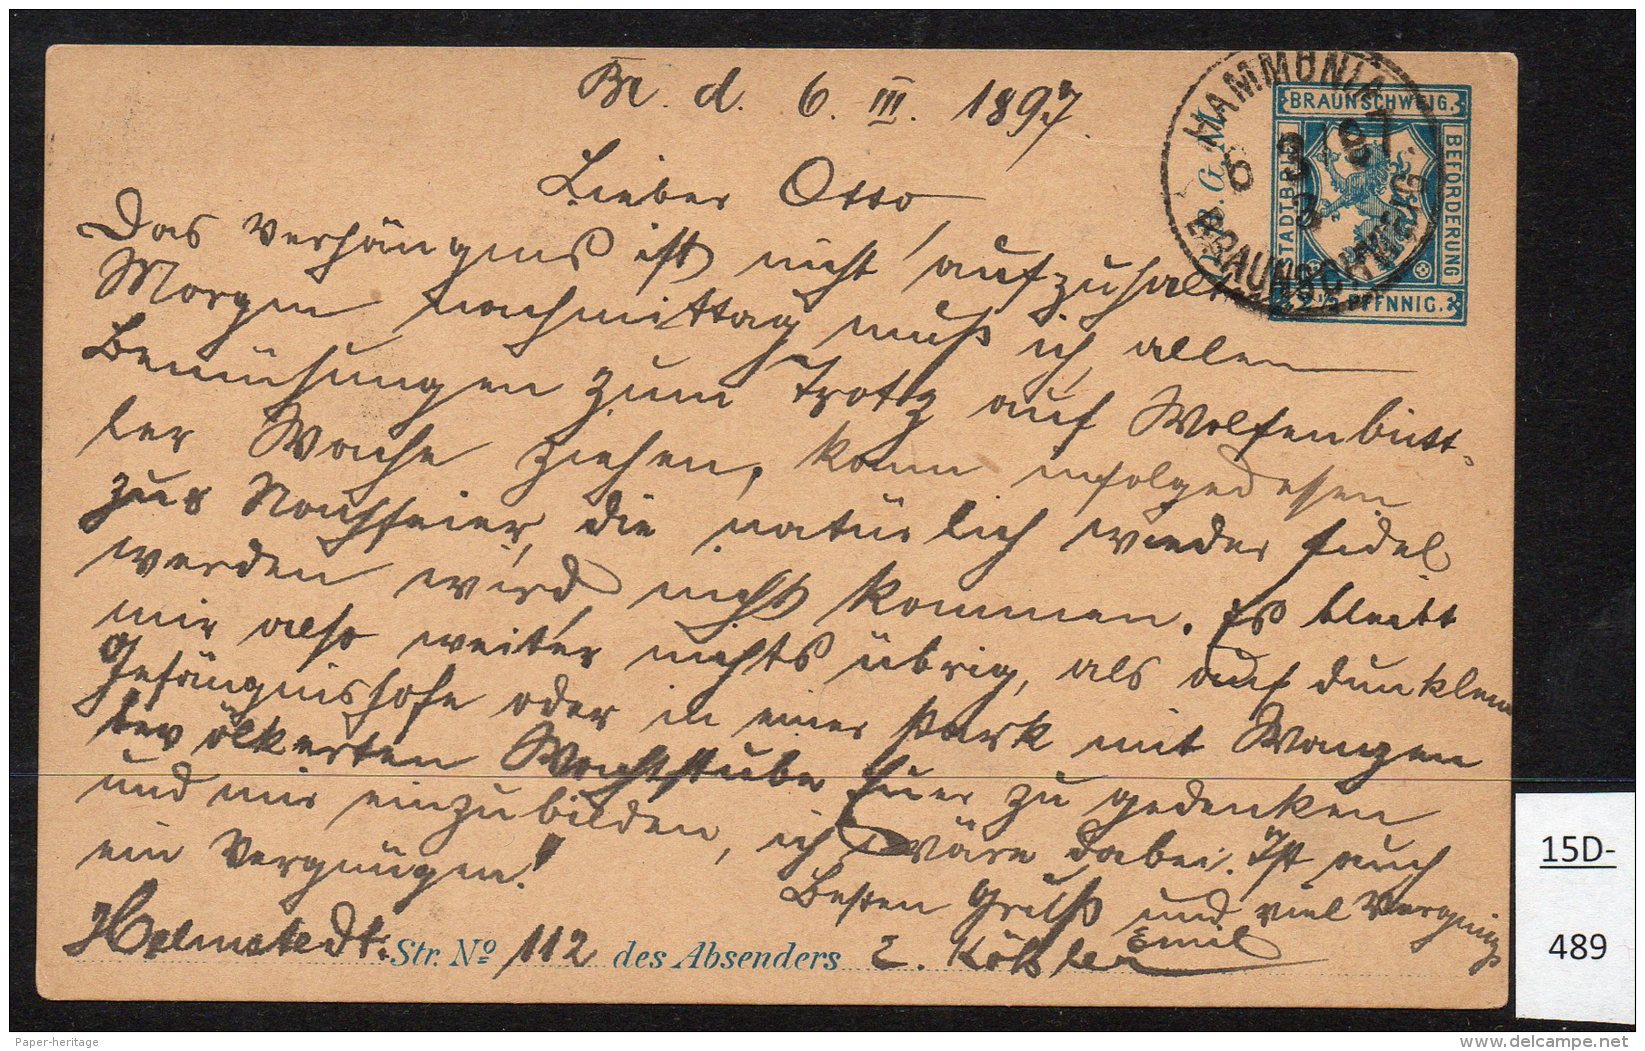 Br. d. 6. III. 1897.
Lieber Otto,
Das Verhängniß ist nicht aufzuhalten
Morgen nachmittag muß ich, allen
Bemühungen zum Trotz auf Wolfenbütt-
ler Wache ziehen, kann infolgedessen
zur Nachfeier, die natürlich wieder fidel
werden wird, nicht kommen. Es bleibt
mir also weiter nichts übrig, als auf dunklem
Gefängnishofe oder in einer stark mit Wanzen
bevölkerten Wachtstube Euer zu gedenken
und mir einzubilden, ich wäre dabei. Ist auch
ein Vergnügen!
Besten Gruß und viel Vergnüg
Emil
Helmstedt. Str. No 112 des Absenders E. Kößler
HAMMONIA
6 3 97.
3
BRAUNSCHWEIG
P.B.G.
BRAUNSCHWEIG.
STADTBRIEF
BEFÖRDERUNG
2½ PFENNIG.
15D-
489
Paper-heritage
delcampe.net